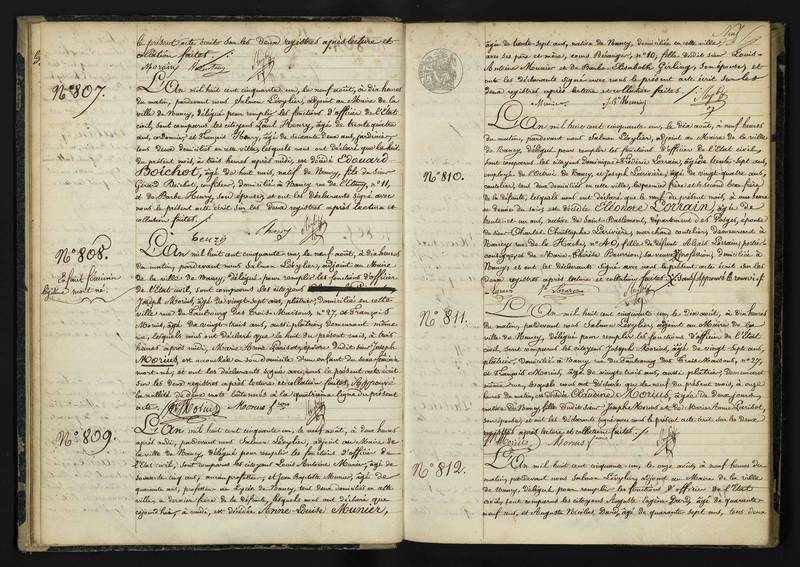 le présent acte écrit sur les deux registres après lecture et
collation faites./.
N.° 807.
L'An mil huit cent cinquante un, le neuf août, à dix heures
du matin, pardevant nous Salmon Lévylier, adjoint au Maire de la
ville de Nancy, délégué pour remplir les fonctions d'officier de l'Etat
civil, sont comparus les citoyens Paul Henry, âgé de trente quatre
ans, et François Henry, âgé de soixante deux ans, jardinier,
tous deux domiciliés en cette ville, lesquels nous ont déclaré que le huit
du présent mois, à trois heures après midi, est décédé Edouard
Boichot, âgé de huit mois, natif de Nancy, fils du sieur
Boichot, domicilié à Nancy rue de l'Etang, n.° 11,
et de Barbe Henry, son épouse; et ont les déclarants signé avec
nous le présent acte écrit sur les deux registres après lecture et
collation faites./.
N.° 808.
Enfant féminin
mort né.
L'An mil huit cent cinquante un, le neuf août, à dix heures
du matin, pardevant nous Salmon Lévylier, adjoint au Maire
de la ville de Nancy, délégué pour remplir les fonctions d'officier
de l'Etat civil, sont comparus les citoyens
Joseph Morius, âgé de vingt sept ans, plâtrier, domicilié en cette
ville rue du Faubourg des Trois Maisons n.° 27, et François
Morius, âgé de vingt trois ans, aussi plâtrier, demeurant même
rue, lesquels nous ont déclaré que le huit du présent mois, à trois
heures après midi, Marie Anne Parisot, épouse dudit sieur Joseph
Morius est accouchée en son domicile d'un enfant du sexe féminin
mort né; et ont les déclarants signé avec nous le présent acte écrit
sur les deux registres après lecture et collation faites. Approuvé
la nullité de deux mots bâtonnés à la quatrième ligne du présent
acte./.
Morius
N.° 809.
L'An mil huit cent cinquante un, le neuf août, à deux heures
après midi, pardevant nous Salmon Lévylier, adjoint au Maire de
la ville de Nancy, délégué pour remplir les fonctions d'officier de
l'Etat civil, sont comparus les citoyens Louis Antoine Munier, âgé de
soixante cinq ans, ancien professeur, et Jean Baptiste Munier, âgé de
quarante ans, professeur au Lycée de Nancy, tous deux domiciliés en cette
ville, lesquels nous ont déclaré que
aujourd'hui, à midi, est décédée Anne Louise Munier,
âgée de trente sept ans, native de Nancy, domiciliée en cette ville
avec ses père et mère, n.° 10, fille dudit sieur Louis-
Antoine Munier et de Barbe Elisabeth Gérling, son épouse; et
ont les déclarants signé avec nous le présent acte écrit sur les
deux registres après lecture et collation faites./.
Munier
N.° 810.
L'An mil huit cent cinquante un, le dix août, à neuf heures
du matin, pardevant nous Salmon Lévylier, adjoint au Maire de la ville
de Nancy, délégué pour remplir les fonctions d'officier de l'Etat civil,
sont comparus les citoyens Dominique Lorrain, âgé de trente sept ans,
employé de l'octroi de Nancy, et Joseph Larivière, âgé de vingt quatre ans,
coutelier, tous deux domiciliés en cette ville, le premier frère et le second beau frère
de la défunte, lesquels nous ont déclaré que le neuf du présent mois, à une heure
et demie du soir, est décédée Eléonore Lorrain, âgée de
trente et un ans, native de Saint Baslemont, département des Vosges, épouse
du sieur Charles Christophe Larivière, marchand coutelier, demeurant à
Nancy rue de la Hache, n.° 40, fille de défunt Alexis Lorrain
et de Marie Thérèse domiciliée à
Nancy; et ont les déclarants signé avec nous le présent acte écrit sur les
deux registres après lecture et collation faites./.
Lorrain
N.° 811.
L'An mil huit cent cinquante un, le dix août, à dix heures
du matin, pardevant nous Salmon Lévylier, adjoint au Maire de la
ville de Nancy, délégué pour remplir les fonctions d'officier de l'Etat
civil, sont comparus les citoyens Joseph Morius, âgé de vingt sept ans,
plâtrier, domicilié à Nancy, rue du Faubourg des Trois Maisons, n.° 27,
et François Morius, âgé de vingt trois ans, aussi plâtrier, demeurant
même rue, lesquels nous ont déclaré que le neuf du présent mois, à onze
heures du matin, est décédée Claudine Morius, âgée de deux jours,
native de Nancy, fille dudit sieur Joseph Morius et de Marie Anne Parisot,
son épouse; et ont les déclarants signé avec nous le présent acte écrit sur les deux
registres après lecture et collation faites./.
Morius
N.° 812.
L'An mil huit cent cinquante un, le onze août, à neuf heures du
matin, pardevant nous Salmon Lévylier, adjoint au Maire de la ville
de Nancy, délégué pour remplir les fonctions d'officier de l'Etat
civil, sont comparus les citoyens Auguste Eugène Dard, âgé de quarante
neuf ans, et Auguste Nicolas Dard, âgé de quarante sept ans, tous deux